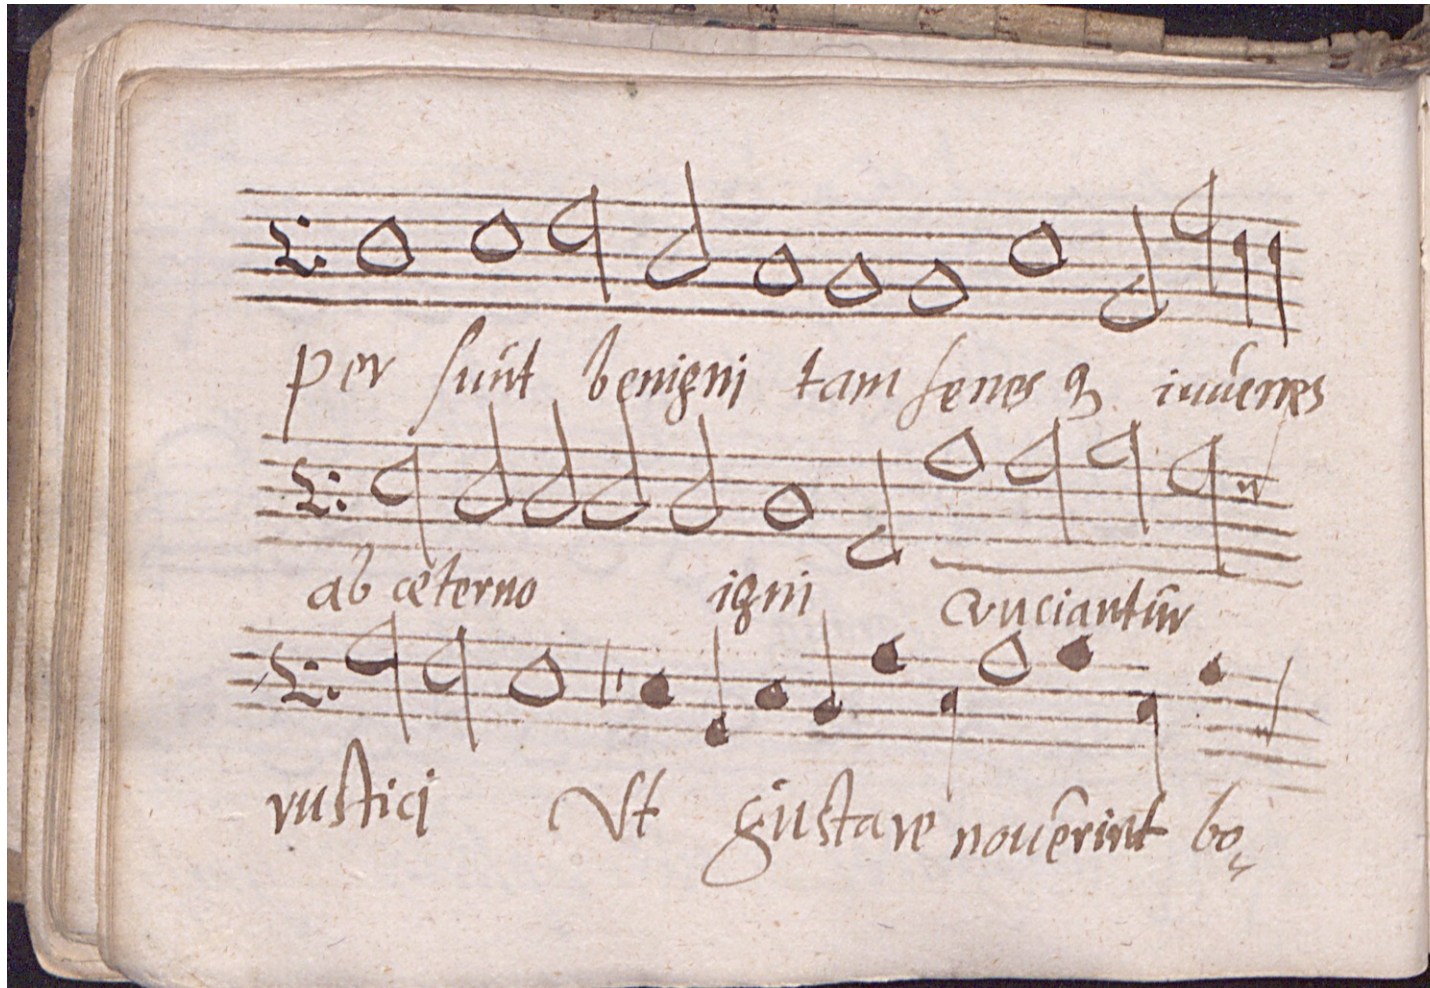 per sunt benigni tam senes qꝫ iuuenes
ab æterno igni cruciantur
rustici Ut gustare nouerint bo